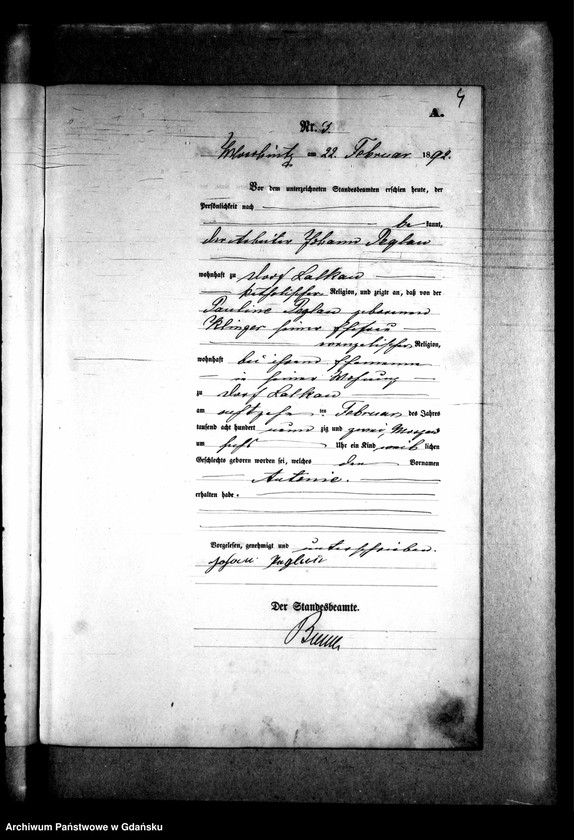 4
A.
Nr. 3
am 22. Februar 1892.
Vor dem unterzeichneten Standesbeamten erschien heute, der
Persönlichkeit nach
be kannt,
der Arbeiter Johann Peglau
wohnhaft zu Dorf Lalkau
katholischer Religion, und zeigte an, daß von der
Pauline Peglau geborenen
Klinger seiner Ehefrau
evangelischer Religion,
wohnhaft bei ihrem Ehemanne
in seiner Wohnung
zu Dorf Lalkau
am achtzehn ten Februar des Jahres
tausend acht hundert neun zig und zwei, Morgens
um sechs Uhr ein Kind weib lichen
Geschlechts geboren worden sei, welches den Vornamen
Antonie.
erhalten habe.
Vorgelesen, genehmigt und unterschrieben.
Johann Peglau
Der Standesbeamte.
Archiwum Państwowe w Gdańsku